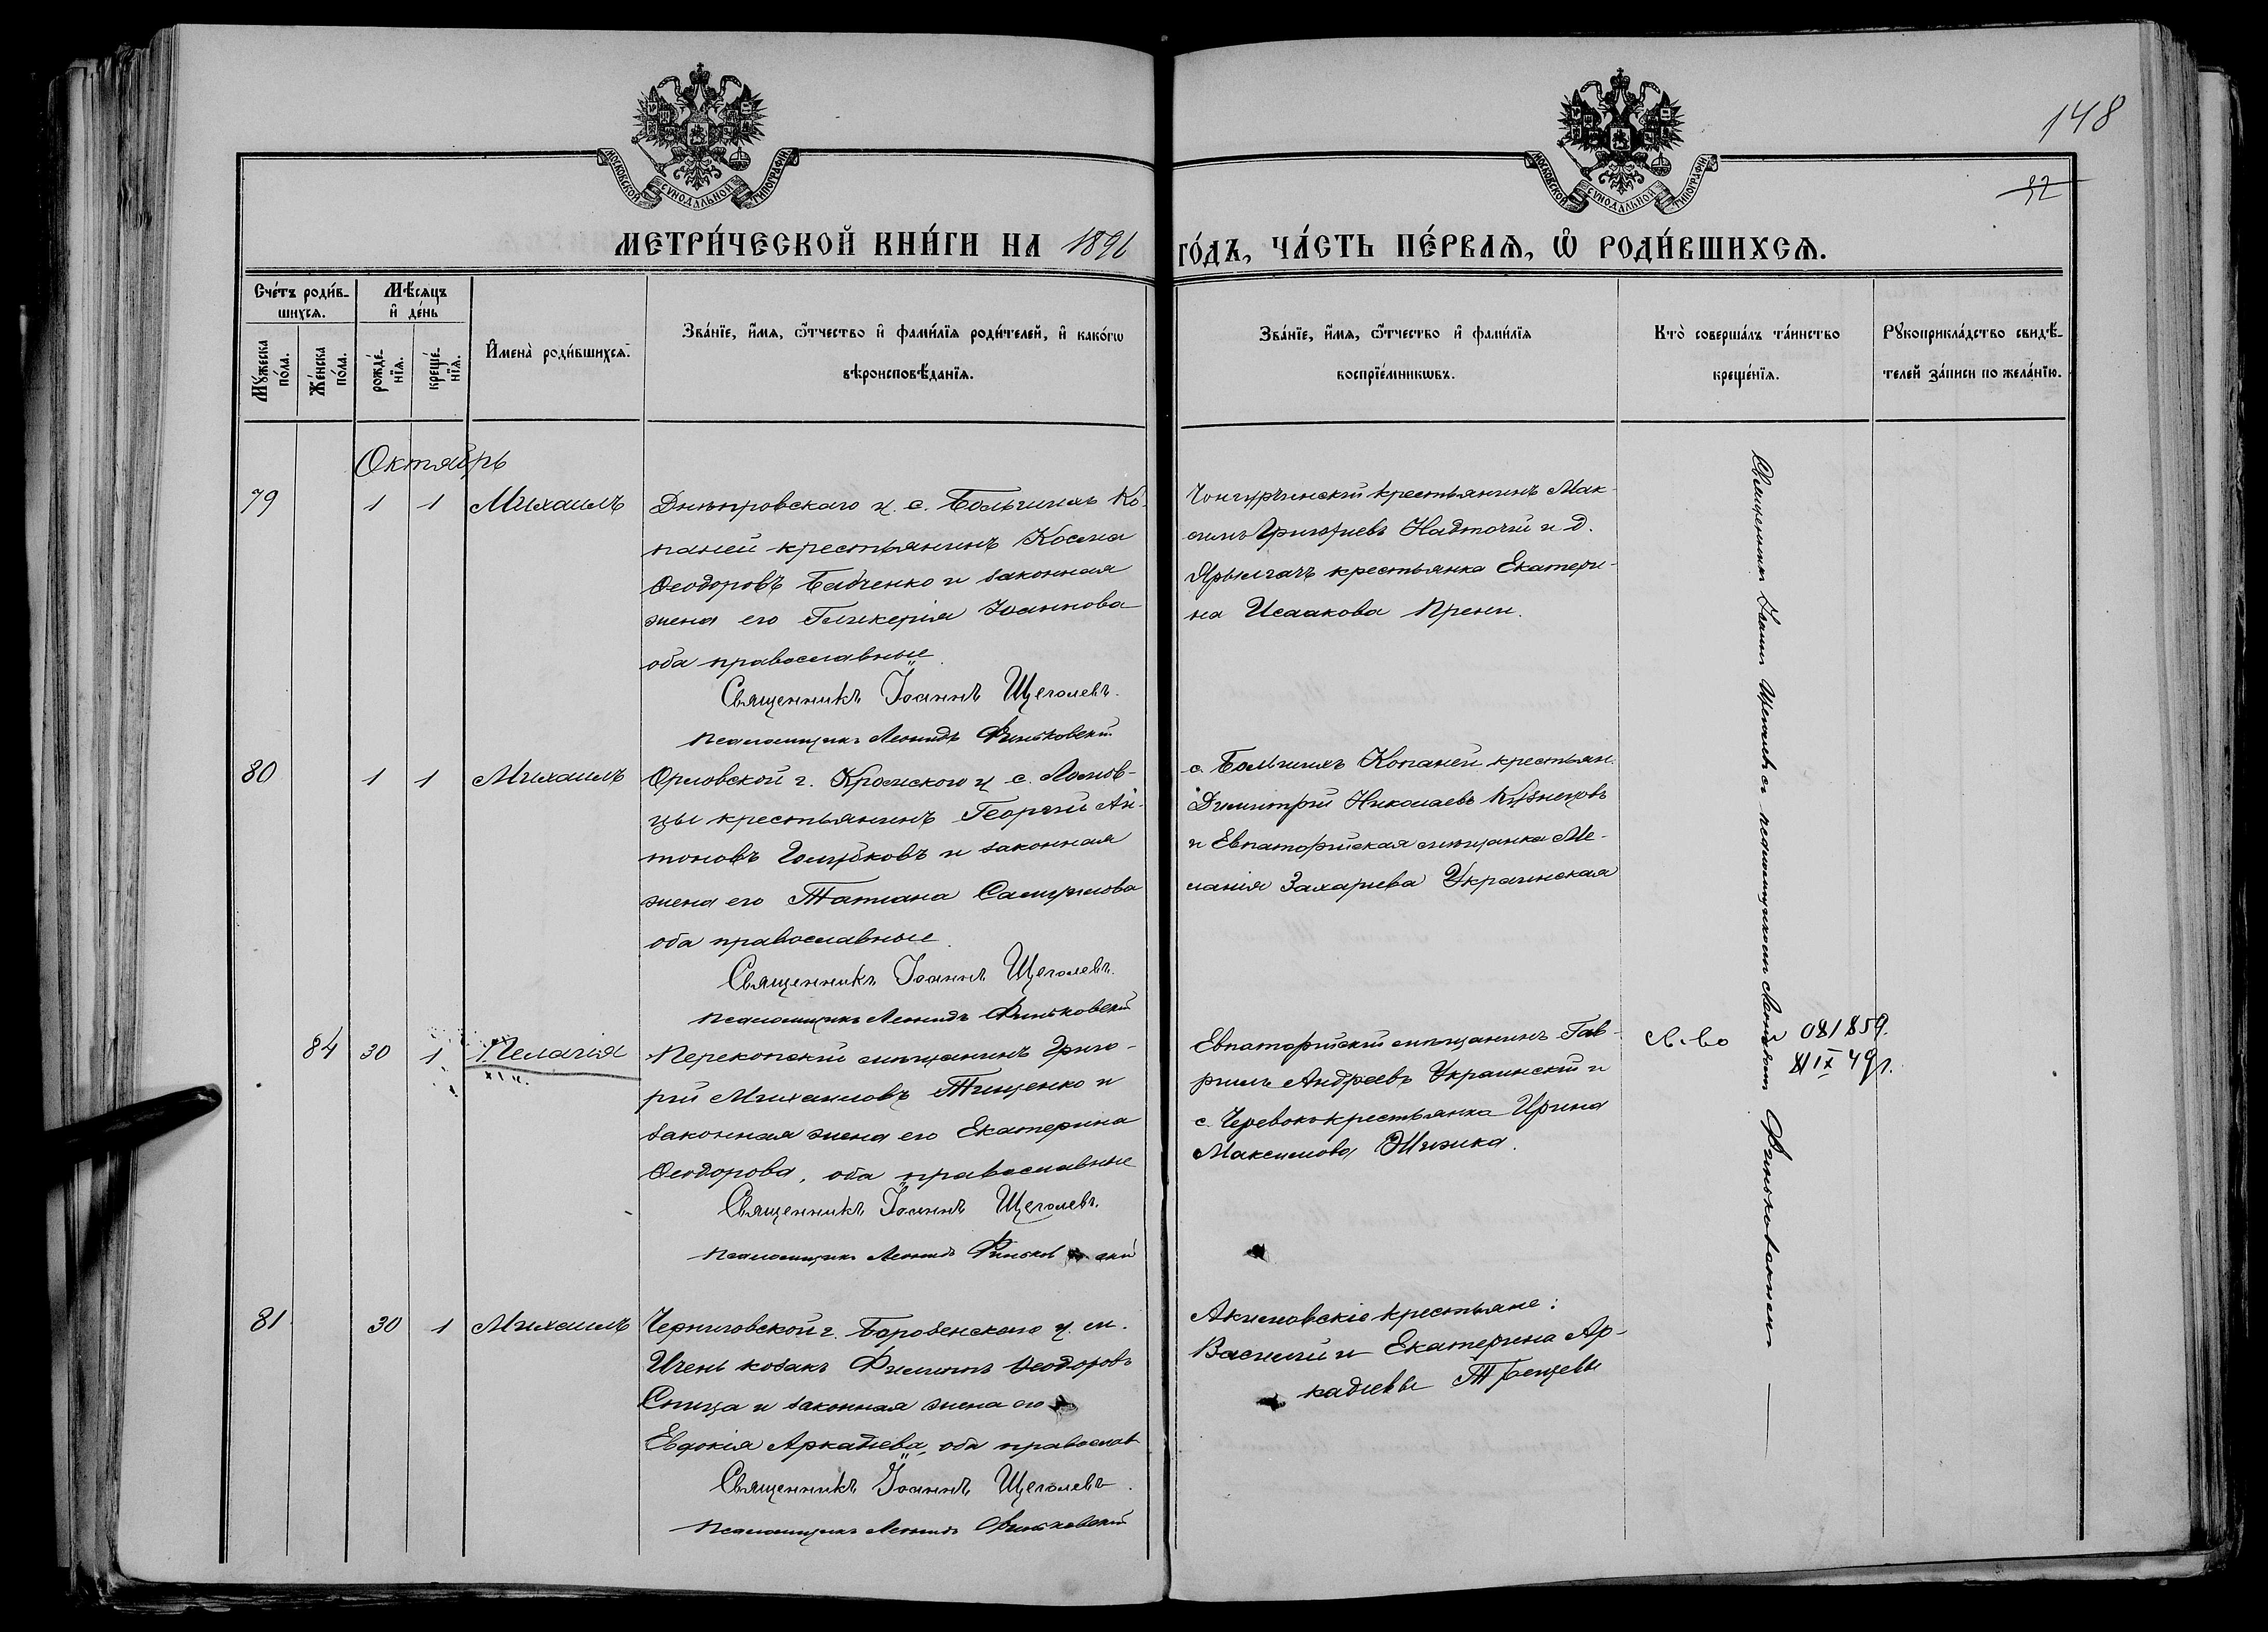 148
52
МОСКОВСКОЙ СѴНОДАЛЬНОЙ ТИПОГРАФІИ
МОСКОВСКОЙ СѴНОДАЛЬНОЙ ТИПОГРАФІИ
МЕТРИ́ЧЕСКОЙ КНИ́ГИ НА 1896 ГО́ДЪ, ЧА́СТЬ ПЕ́РВАѦ, Ѡ҆ РОДИ́ВШИХСѦ.
Сче́тъ роди́в-
шихсѧ.
Мꙋ́жеска по́ла.
Же́нска по́ла.
Мѣ́сѧцъ
и҆ де́нь
рожде́-
нїѧ.
креще́-
нїѧ.
И҆мена̀ роди́вшихсѧ.
Зва́нїе, и҆́мѧ, ѻ҆́тчество и҆ фами́лїѧ роди́телей, и҆ како́гѡ
вѣроисповѣ́данїѧ.
Зва́нїе, и҆́мѧ, ѻ҆́тчество и҆ фами́лїѧ
воспрїе́мникѡвъ.
Кто̀ соверша́лъ та́инство
креще́нїѧ.
Рꙋкоприкла́дство свидѣ́-
телей за́писи по жела́нїю.
Октябрь
79 1 1 Михаилъ
Днѣпровскаго у. с. Большихъ Ко-
паней крестьянинъ Косма
Ѳеодоровъ Бабченко и законная
жена его Гликерія Іоаннова
оба православные
Священникъ Іоаннъ Щеголевъ.
Псаломщикъ Леонидъ Финьковскій
Чонгурчинскій крестьянинъ Мак-
симъ Григорьевъ Надточій и д.
Ярылгачъ крестьянка Екатери-
на Исаакова
80 1 1 Михаилъ
Орловской г. Кромского у с. Ломов-
цы крестьянинъ Георгій Ан-
тоновъ Голубковъ и законная
жена его Татіана Самуилова
оба православные
Священникъ Іоаннъ Щеголевъ.
Псаломщикъ Леонидъ Финьковскій
с. Большихъ Копаней крестьян.
Димитрій Николаевъ Кузнецовъ
и Евпаторійская мѣщанка Ме-
ланія Захарьева Украинская
84 30 1 Пелагія
Перекопскій мѣщанинъ Григо-
рій Михаиловъ Тищенко и
законная жена его Екатерина
Ѳеодорова, оба православные
Священникъ Іоаннъ Щеголевъ.
Псаломщикъ Леонидъ Финьковскій
Евпаторійскій мѣщанинъ Гав-
риилъ Андреевъ Украинскій и
с. Черевокъ крестьянка Ирина
Максимова
081859.
IX 49г.
81 30 1 Михаилъ
Черниговской г. Борзенскаго у. м.
Ичень козакъ Филиппъ Ѳеодоровъ
Спица и законная жена его
Евдокія Аркадіева, оба православ
Священникъ Іоаннъ Щеголевъ.
Псаломщикъ Леонидъ Финьковскій
Акимовскіе крестьяне:
Василій и Екатерина Ар-
кадіевы
Священникъ Іоаннъ Щеголевъ съ псаломщикомъ Леонидомъ Финьковскимъ